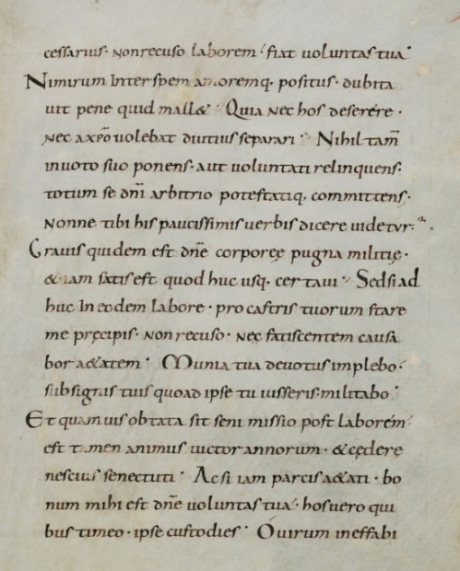 cessarius. Non recuso laborem; fiat voluntas tua.
Nimirum inter spem amoremq. positus. dubita
vit pene quid mall&. Quia nec hos deserere.
nec a xp̄o volebat diutius separari. Nihil tam̄
in voto suo ponens. aut voluntati relinquens.
totum se dn̄i arbitrio potestatiq. committens.
Nonne tibi his paucissimis verbis dicere videtur.
Gravis quidem est dn̄e corporeę pugna militię.
& iam satis est quod huc usq. certavi. Sed si ad
huc in eodem labore. pro castris tuorum stare
me precipis. non recuso. nec fatiscentem causa
bor a&atem. Munia tua devotus implebo.
sub signis tuis quoad ipse tu iusseris. militabo.
Et quamvis obtata sit seni missio post laborem.
est tamen animus victor annorum. & cędere
nescius senectuti. Ac si iam parcis a&ati. bo
num mihi est dn̄e voluntas tua. hos vero qui
bus timeo. ipse custodies. O virum ineffabi